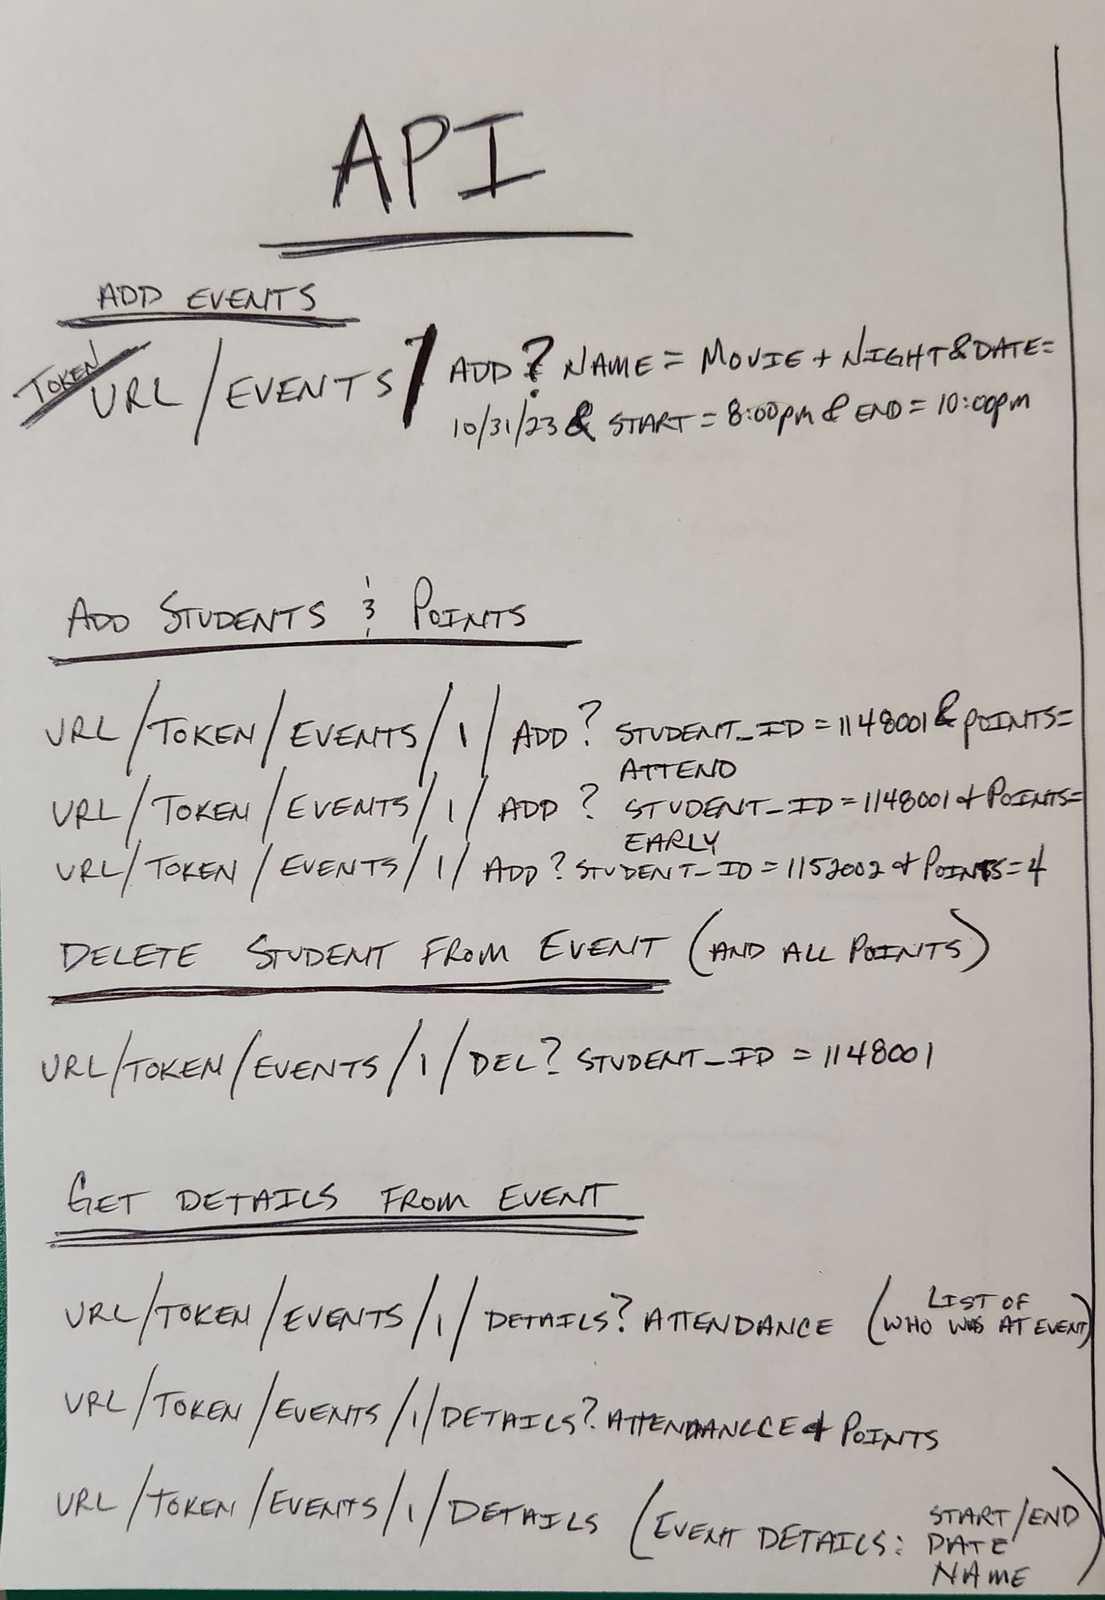 API
ADD EVENTS
TOKEN
URL/EVENTS/ADD? NAME = MOVIE + NIGHT & DATE=
10/31/23 & START = 8:00pm & END = 10:00pm
ADD STUDENTS & POINTS
URL/TOKEN/EVENTS/1/ADD? STUDENT_ID = 1148001 & POINTS=
ATTEND
URL/TOKEN/EVENTS/1/ADD? STUDENT_ID = 1148001 & POINTS=
EARLY
URL/TOKEN/EVENTS/1/ADD? STUDENT_ID = 1152002 & POINTS=4
DELETE STUDENT FROM EVENT (AND ALL POINTS)
URL/TOKEN/EVENTS/1/DEL? STUDENT_ID = 1148001
GET DETAILS FROM EVENT
URL/TOKEN/EVENTS/1/DETAILS? ATTENDANCE (LIST OF
WHO WAS AT EVENT)
URL/TOKEN/EVENTS/1/DETAILS? ATTENDANCCE & POINTS
URL/TOKEN/EVENTS/1/DETAILS (EVENT DETAILS: START/END
DATE
NAME)